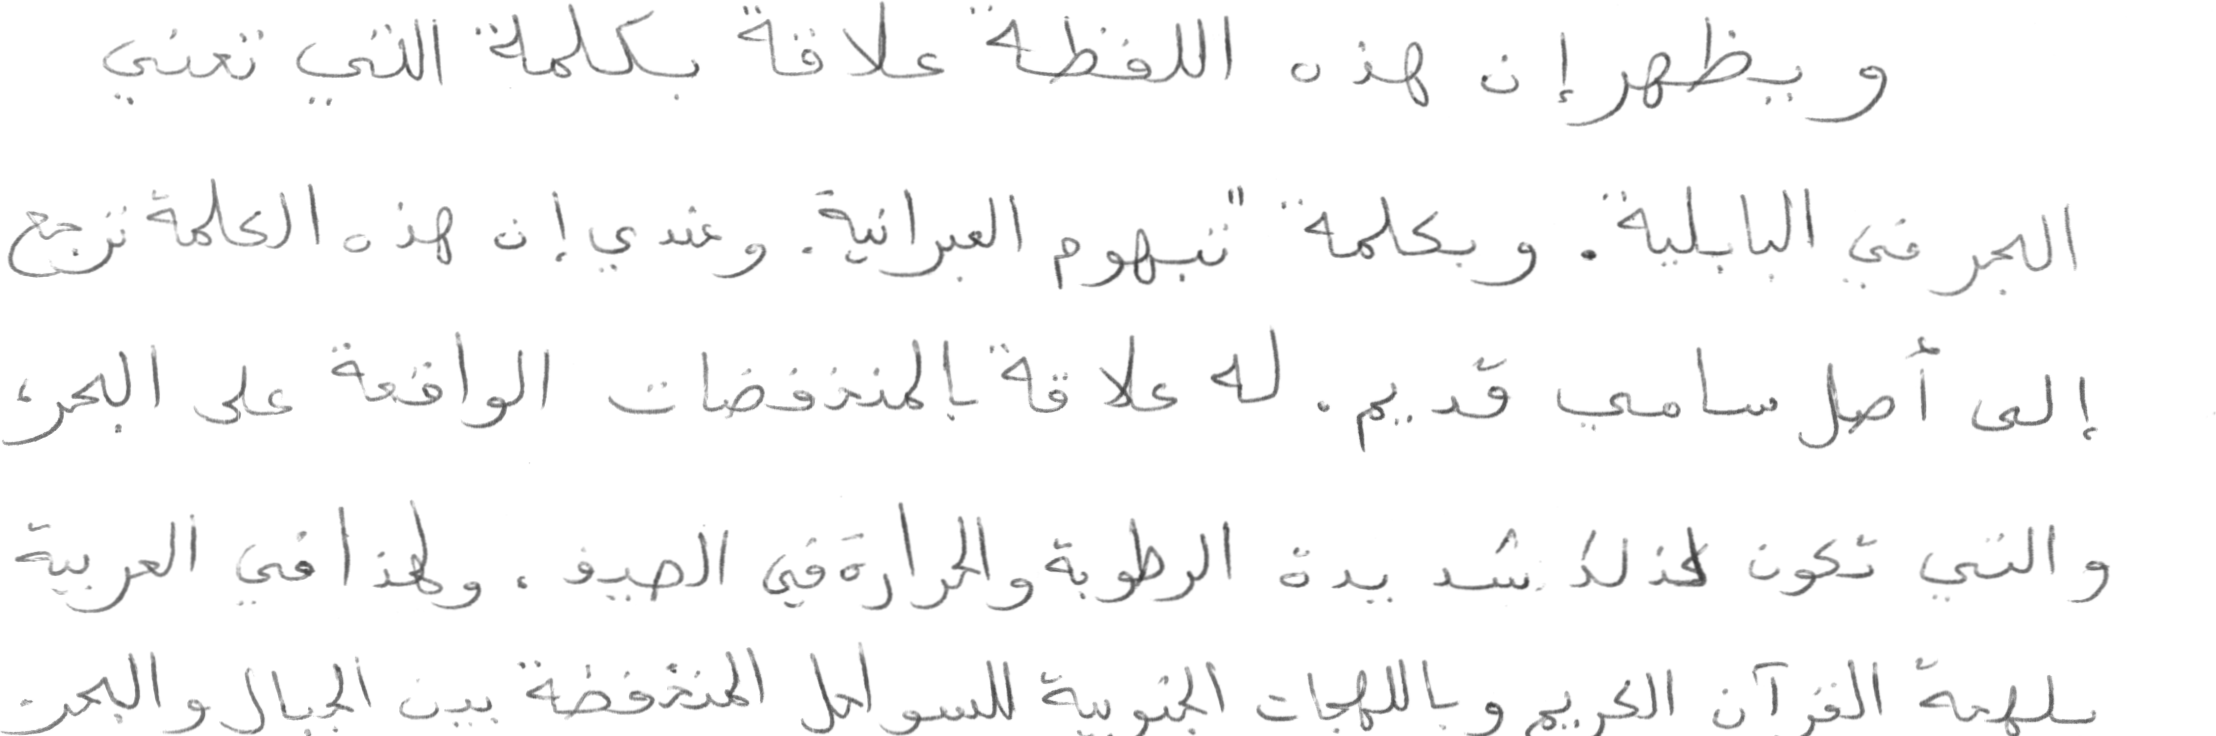 ويظهر إن هذه اللفظة علاقة بكلمة التي تعني
البحر في البابلية. وبكلمة "تيهوم العبرانية. وعندي إن هذه الكلمة ترجع
إلى أصل سامي قديم. له علاقة بالمنخفضات الواقعة على البحر،
والتي تكون كذلك شديدة الرطوبة والحرارة في الصيف. ولهذا في العربية
القرآن الكريم وباللهجات الجنوبية للسواحل المنخفضة بين الجبال والبحر